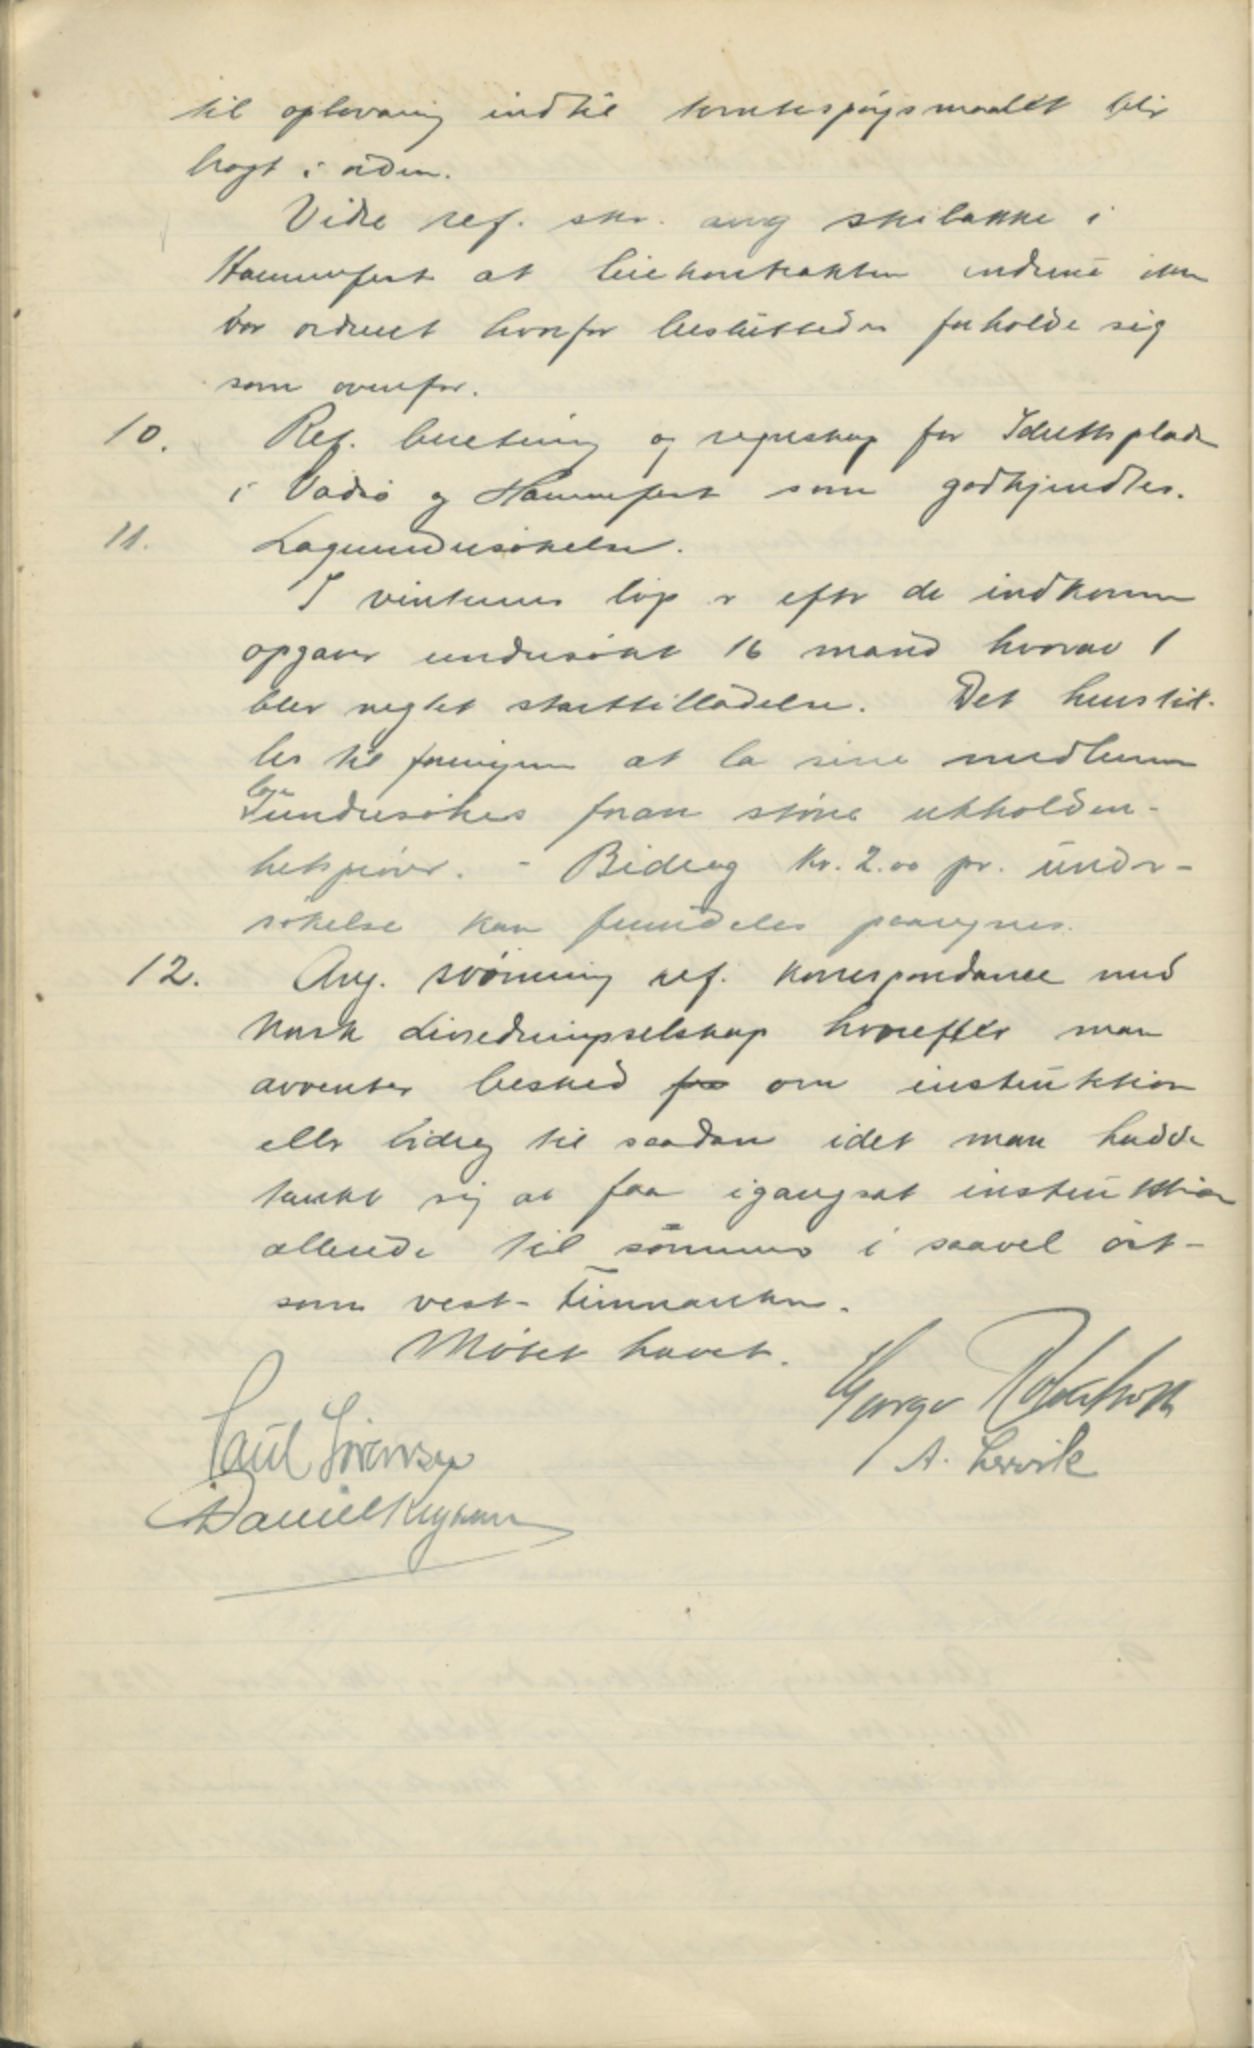 til opbevaring indtil tomtespørgsmaalet blir
bragt i orden.
Vidre ref. skr. ang skibakke i
Hammerfest at leiekontrakten endnu ikke
var ordnet hvorfor besluttedes forholde sig
som ovenfor.
10. Ref. beretning og regnskap for Idrættsplads
i Vadsø og Hammerfest som godkjendtes.
11. Lægeundersøkelse.
I vinterens løp er efter de indkomne
opgaver undersøkt 16 mand hvorav 1
blev negtet starttilladelse. Det henstil-
les til foreningene at la sine medlemmer
læ
undersøkes foran større utholden-
hetsprøver. - Bidrag kr. 2.00 pr. under-
søkelse kan fremdeles paaregnes.
12. Ang. svømning ref. korrespondance med
Norsk Livredningsselskap hvorefter man
avventer besked fra om instruktion
eller bidrag til saadan idet man hadde
tænkt sig at faa igangsat instruktion
allerede til sommeren i saavel øst-
som vest-Finnmarken.
Møtet hævet.
Paul Sørensen
A. Lervik
Daniel